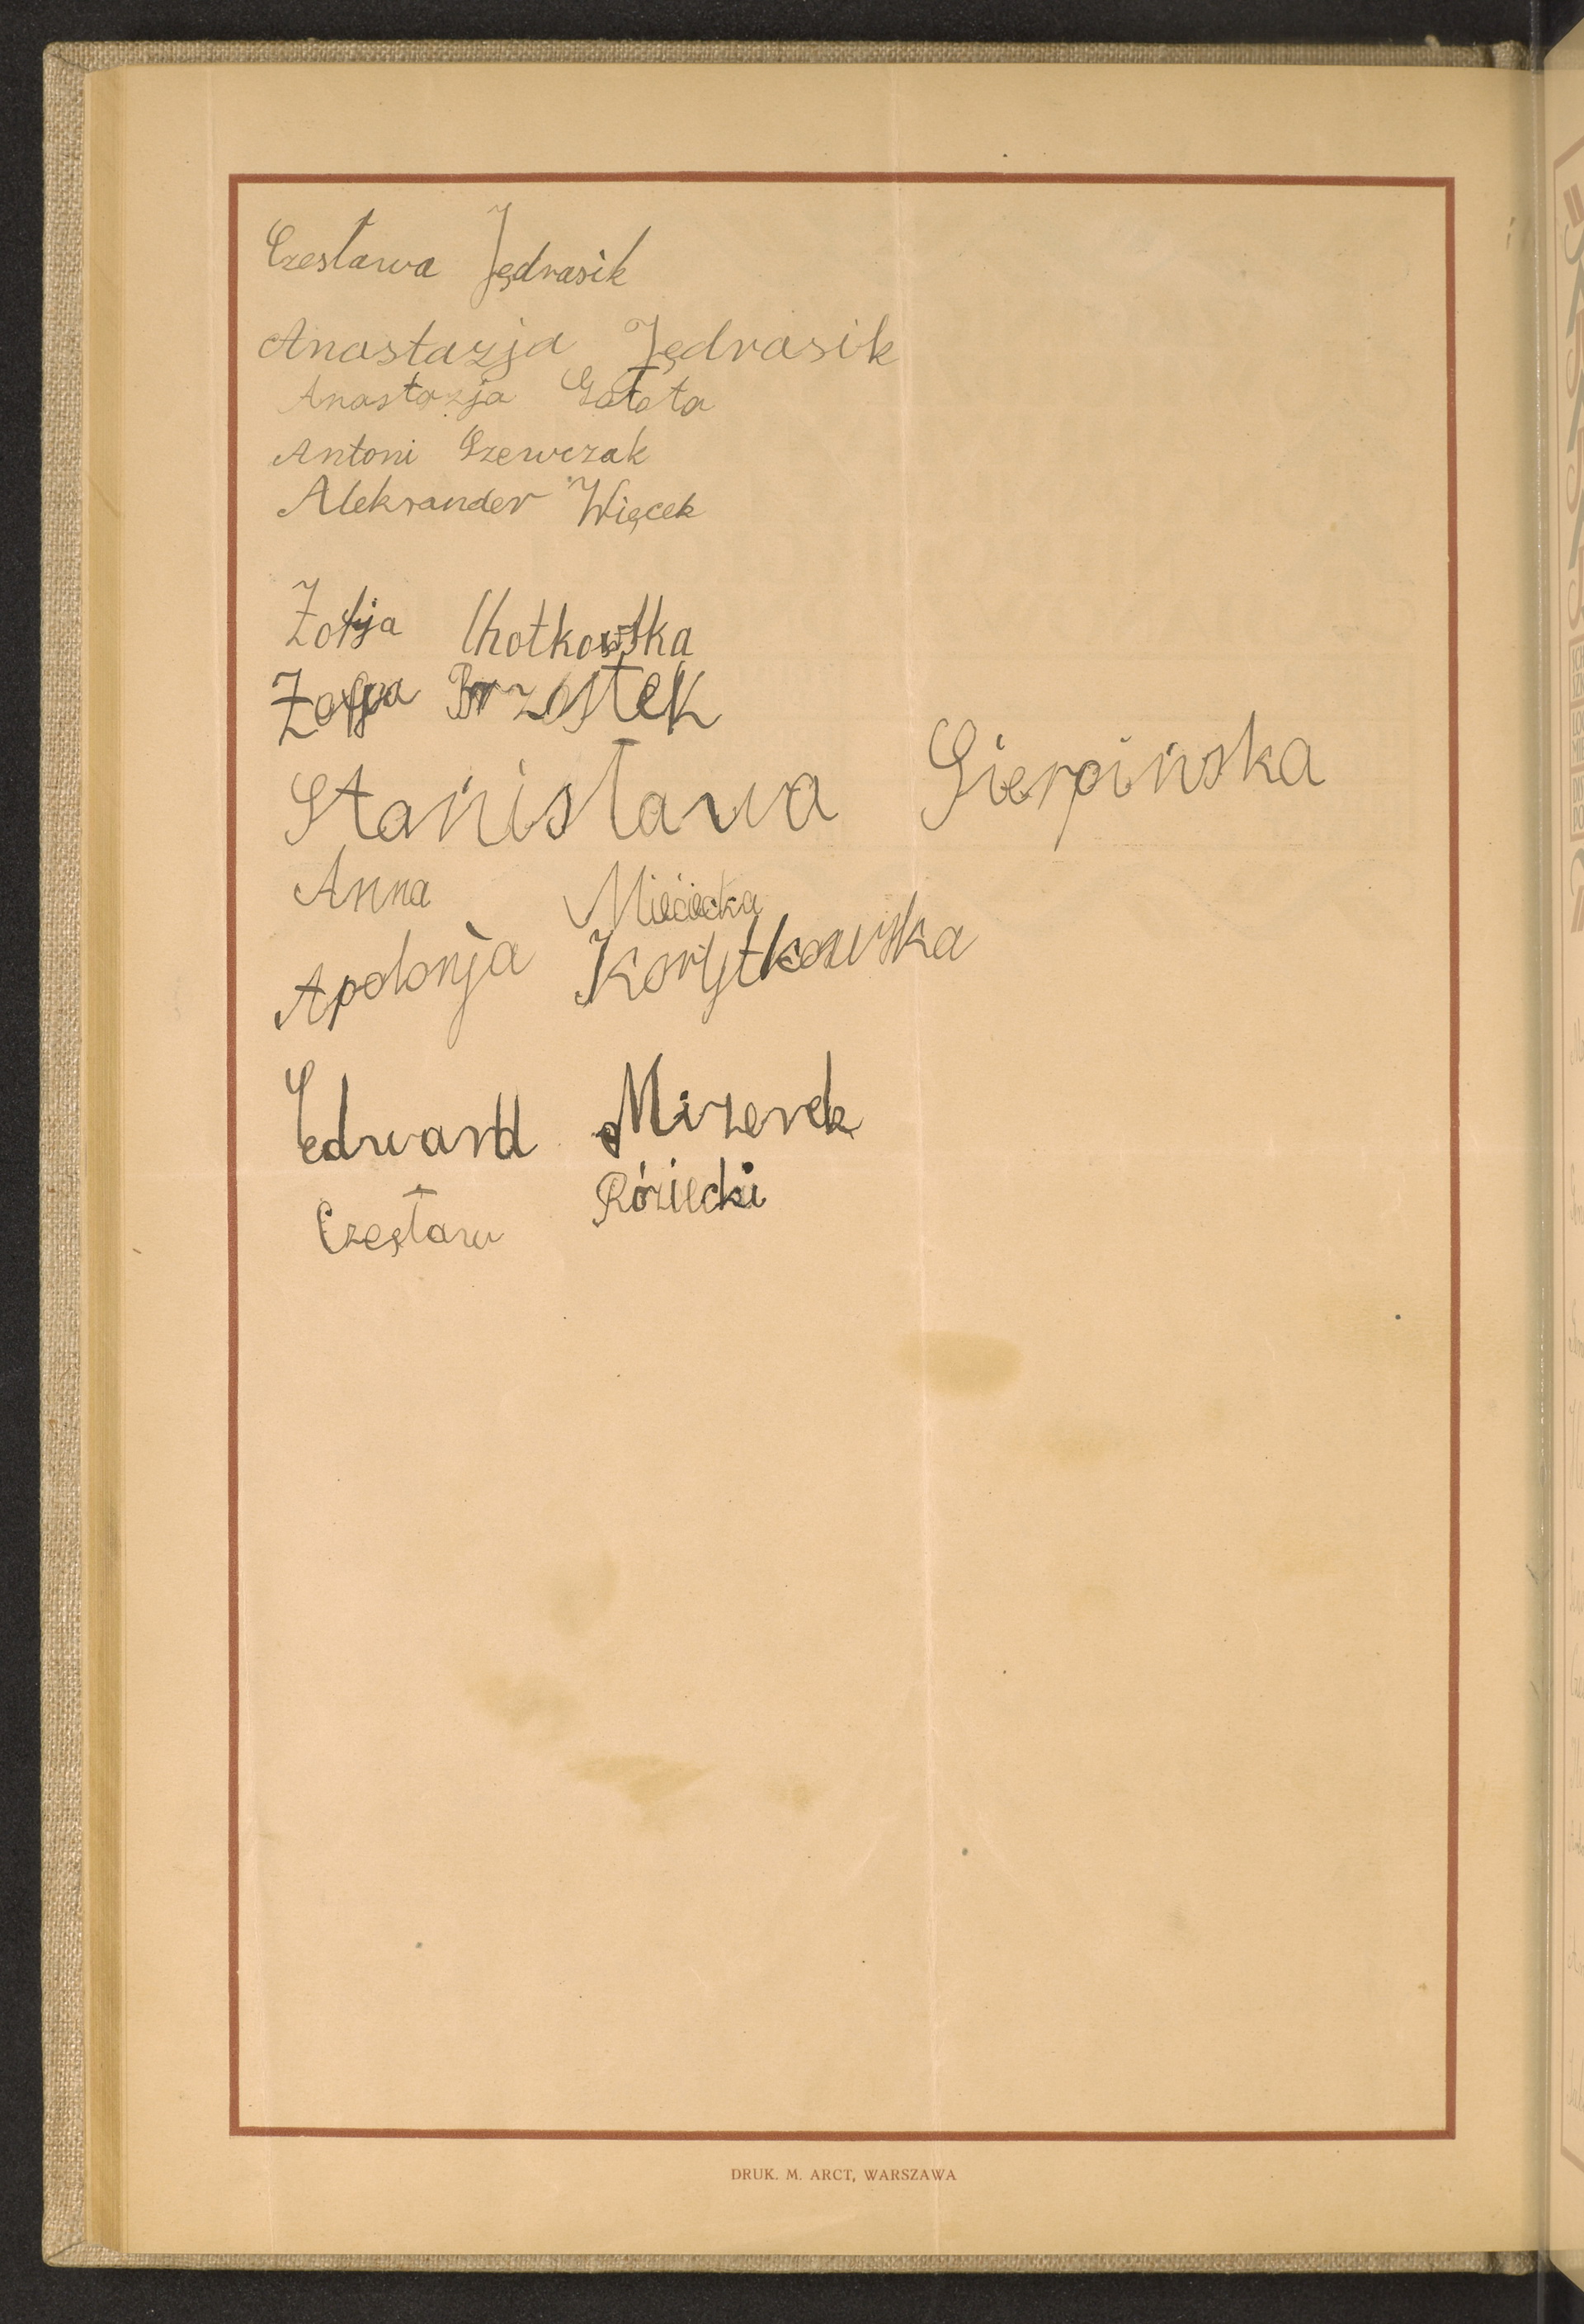 Czesława Jędrasik
Anastazja Jędrasik
Anastazja Gałota
Antoni Szewczak
Aleksander Więcek
Zofja Chotkowska
Zofja Brzostek
Stanisława Sierpińska
Anna Miecicka
Apolonja Korytkowska
Edward Mizerek
Czesław Róziecki
DRUK. M. ARCT, WARSZAWA